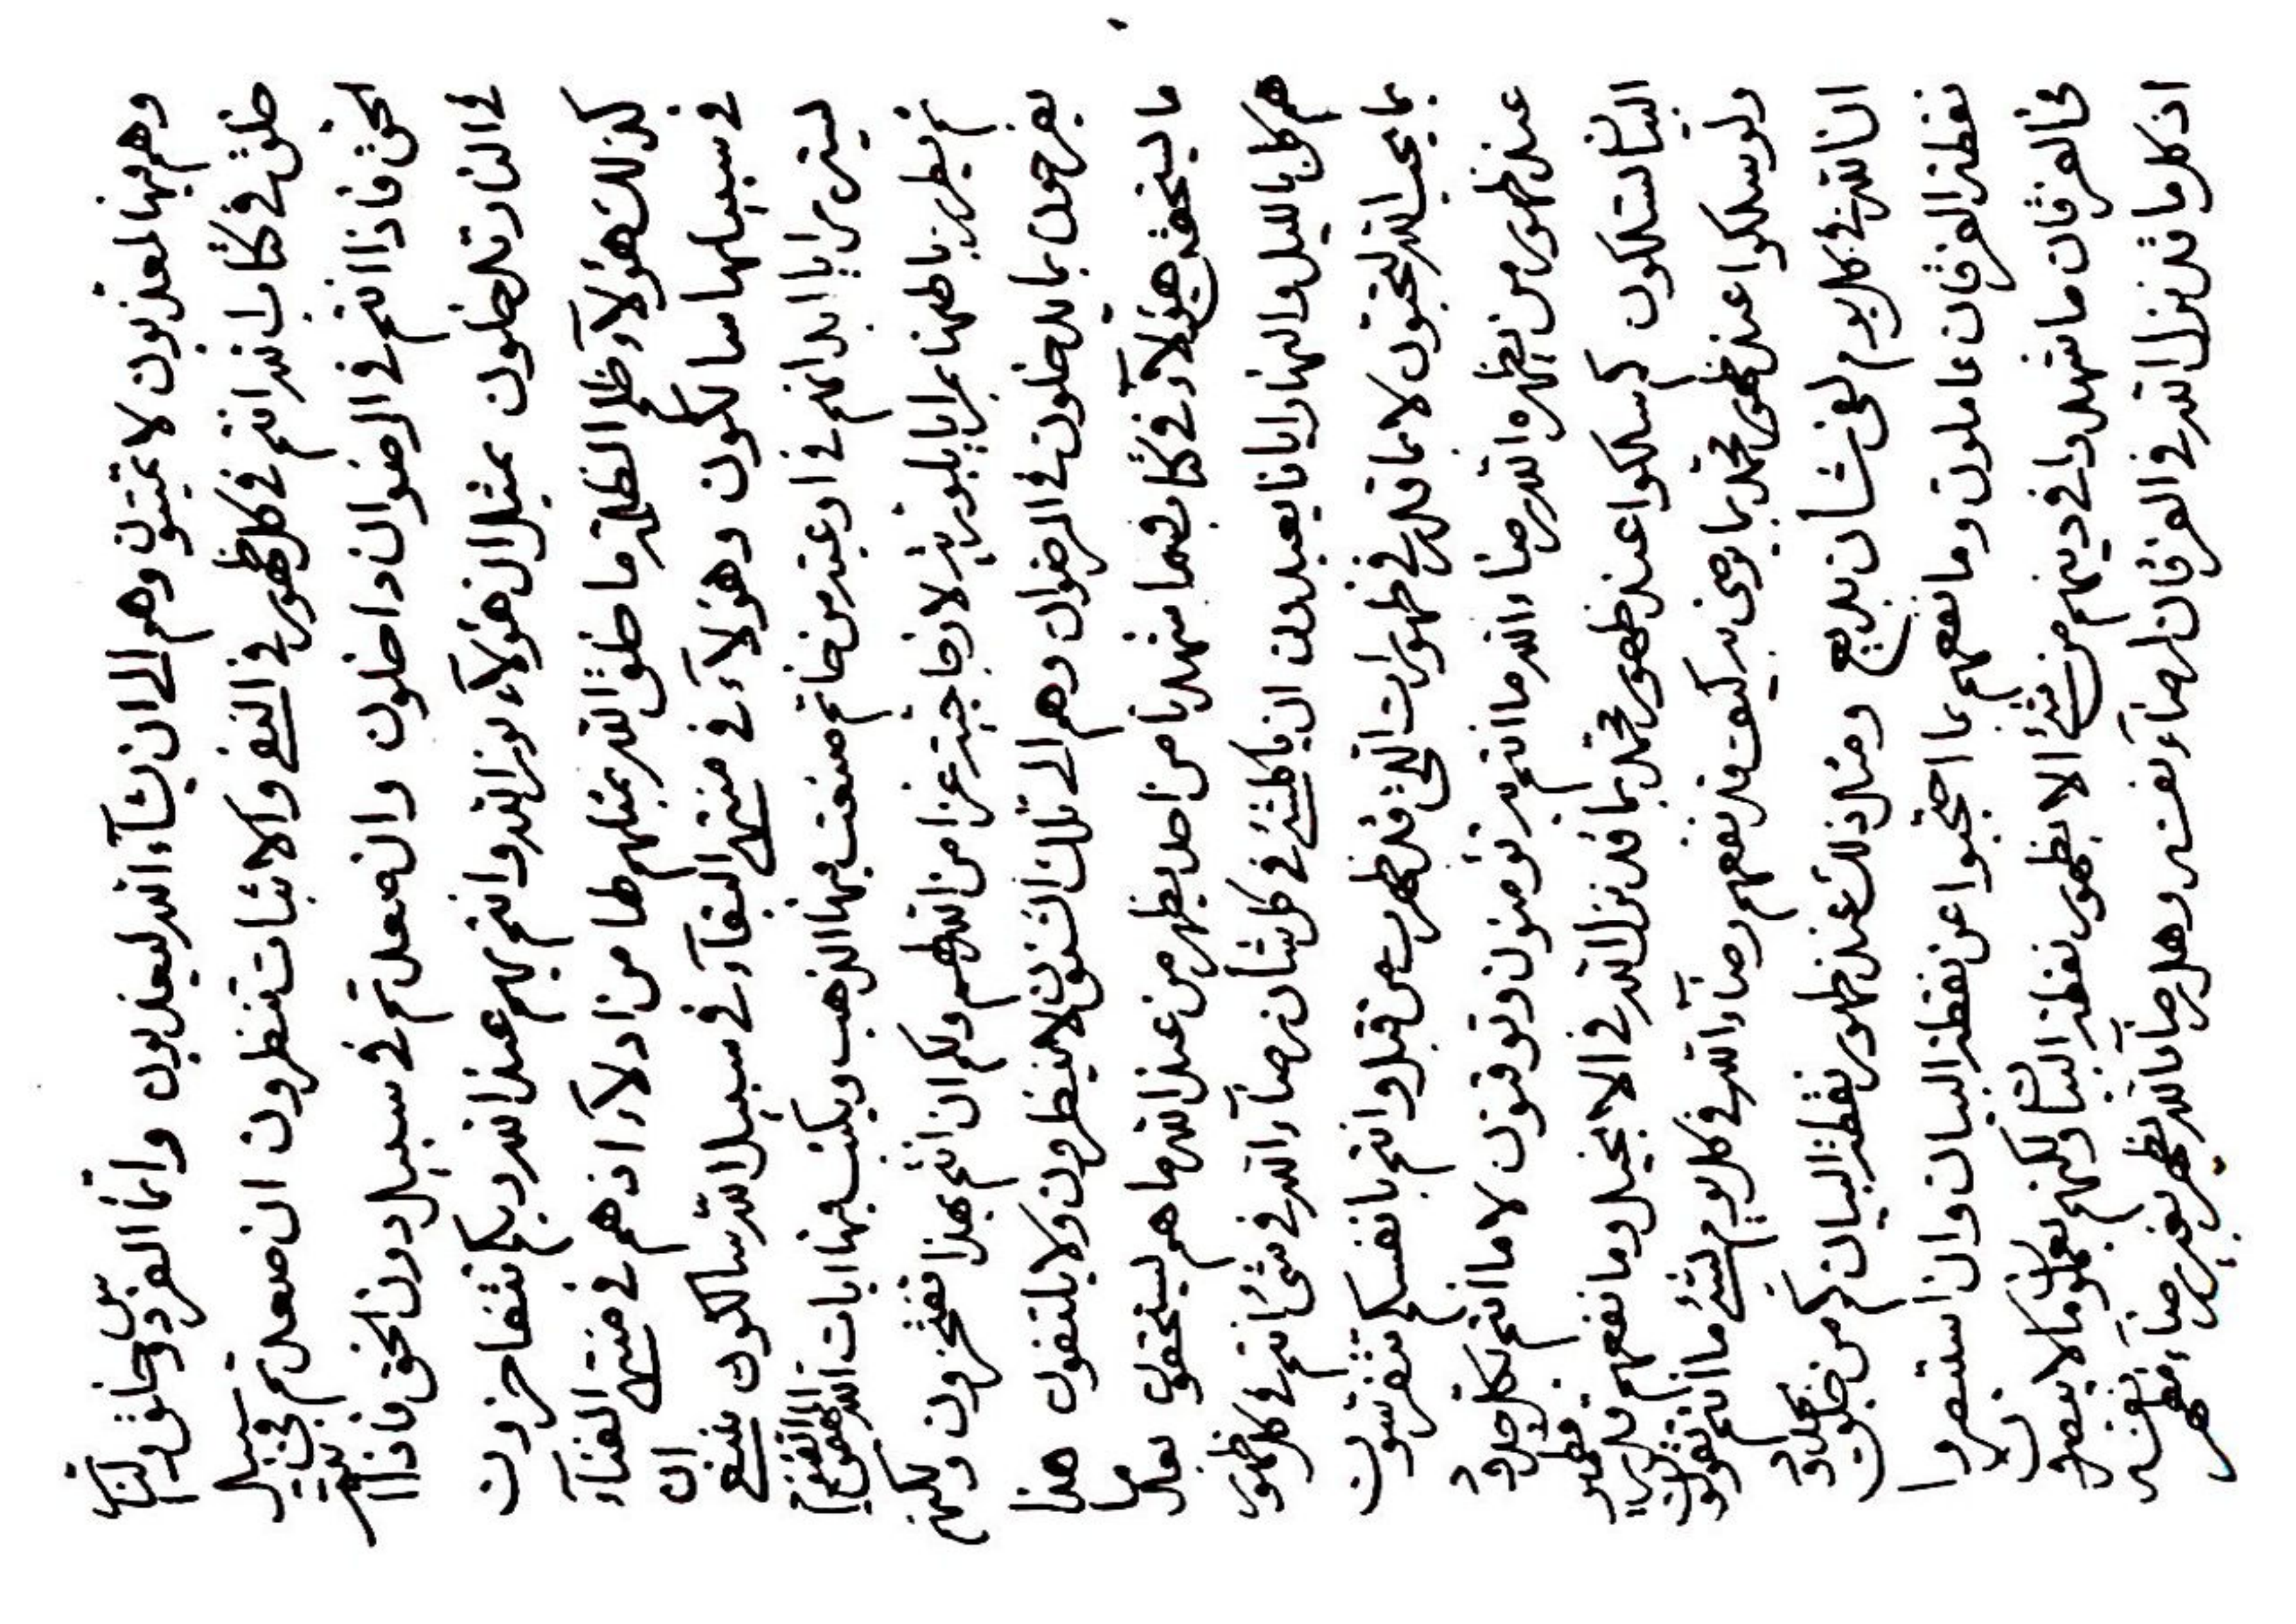 وهم فيها لمعذبون لا يميتون وهم الى ان يشآء الله ليعذبون وانما الفردوس خلق ولنار
خلق في كتاب الله انتم في كل ظهور في النفي والاثبات تنظرون ان صعدتم في سبيل
الحق فاذا انتم في الرضوان داخلون وان صعدتم في سبيل دون الحق فاذا انتم
في النار تدخلون بمثل ان هؤلآء الله وانتم بهم عند الله ربكم تتفاخرون
كذلك هؤلآء ظلم الظلمة ما خلق الله بمثلهم ظلما من ادلآء اذ هم في منتهى الفنآء
في سبيلها سالكون وهؤلآء في منتهى البقآء في سبيل الله سالكون ينبغ ان
مرايا ابدانهم في اوعية من صنعت فيها الذهب ويكتب فيها ايات الله
ثم يطرز باطنها بمرايا بلورية لا زجاجية عزا من الله لهم ولكم ان انتم بهذا تفتخرون ولكنهم
يفرحون بما يدخلون في الرضوان وهم الى تلك الشئون لا ينظرون ولا يلتفون هذا
ما هؤلآء في كتاب فما شهدنا من احد يظهر من عند الله ما هم ليستحقون بعد ما
هم كل بالليل والنهار ايانا يعبدون ان يا كلشئ في كل شأن رضآء الله في شئ انتم في كل ظهور
بما يحب الله لتحبون لا بما قدر في ظهورات التي قد ظهرت من قبل وانتم بانفسكم تتقربون
عند ظهور من يظهره الله رضاء الله ما انتم به تؤمنون وتوقنون لا ما انتم بكل حدود
البيان لتسلكون لو سلكوا عند ظهور محمد بما قد نزل الله في الانجيل وما نفعهم قدر قطمير
ولو سلكوا عند ظهور محمد بما يوصى به كيف قد نفعهم رضآء الله في كل يوم لشئ ما انتم تتقون
ان الله في كل يوم لفي شأن بديع ومثل ذلك عند ظهور نقطة البيان كم من خلق بحدود
نقطة الفرقان عاملون وما نفعهم بما احتجبوا عن نقطة البيان وان استبصروا
في الفرقان ما شهدوا في دينهم من شئ الا بظهور نقطة البيان ولكنهم يعملون ما لا يبصرون
اذ كل ما قد نزل الله في الفرقان لرضآء نفسه وهل رضا بالله يظهر بغير رضآء مظهر نفسه